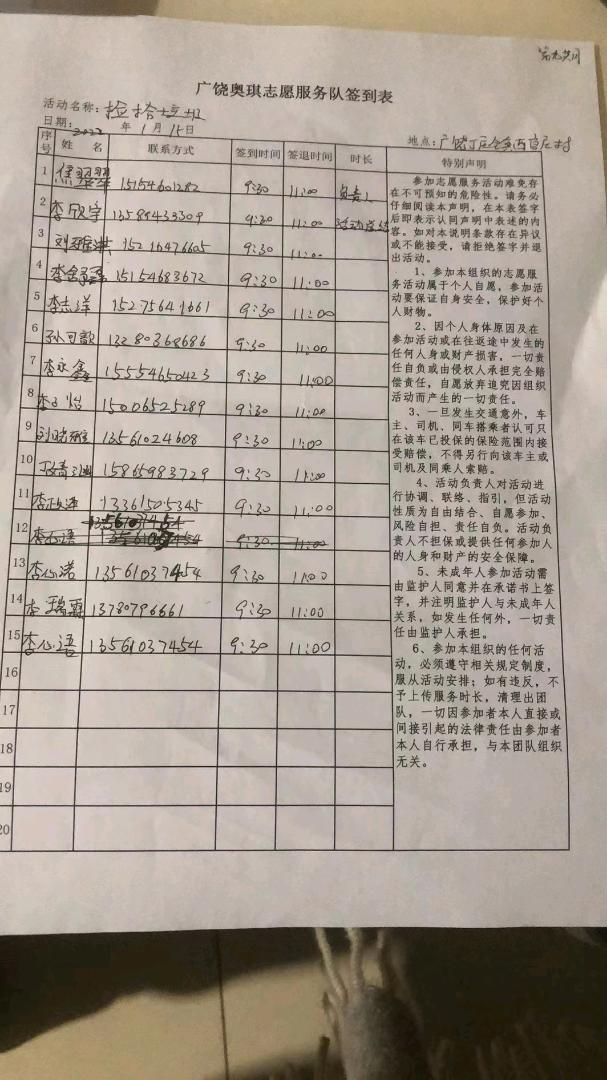 广饶奥琪志愿服务队签到表
活动名称：捡拾垃圾
日期：2022年1月15日
地点：广饶
序号 姓名 联系方式 签到时间 签退时间 时长 特别声明
1 15154601282 9:30 11:00 负责人
2 李欣宇 13589433309 9:30 11:00 活动总结
3 15216476605 9:30 11:00
4 15154683672 9:30 11:00
5 李志洋 15275641661 9:30 11:00
6 孙可歆 13280368686 9:30 11:00
7 李永鑫 15554650423 9:30 11:00
8 李子怡 15006525289 9:30 11:00
9 13561024608 9:30 11:00
10 15865983729 9:30 11:00
11 13361505345 9:30 11:00
12 李心语 13561037454 9:30 11:00
13 李心诺 13561037454 9:30 11:00
14 13780796661 9:30 11:00
15 李心语 13561037454 9:30 11:00
16
17
18
19
20
参加志愿服务活动难免存
在不可预知的危险性。请务必
仔细阅读本声明，在本表签字
后即表示认同声明中表述的内
容。如对本说明条款存在异议
或不能接受，请拒绝签字并退
出活动。
1、参加本组织的志愿服
务活动属于个人自愿，参加活
动要保证自身安全，保护好个
人财物。
2、因个人身体原因及在
参加活动或在往返途中发生的
任何人身或财产损害，一切责
任自负或由侵权人承担完全赔
偿责任，自愿放弃追究因组织
活动而产生的一切责任。
3、一旦发生交通意外，车
主、司机、同车搭乘者认可只
在该车已投保的保险范围内接
受赔偿，不得另行向该车主或
司机及同乘人索赔。
4、活动负责人对活动进
行协调、联络、指引，但活动
性质为自由结合、自愿参加、
风险自担、责任自负。活动负
责人不担保或提供任何参加人
的人身和财产的安全保障。
5、未成年人参加活动需
由监护人同意并在承诺书上签
字，并注明监护人与未成年人
关系，如发生任何外，一切责
任由监护人承担。
6、参加本组织的任何活
动，必须遵守相关规定制度，
服从活动安排；如有违反，不
予上传服务时长，清理出团
队，一切因参加者本人直接或
间接引起的法律责任由参加者
本人自行承担，与本团队组织
无关。